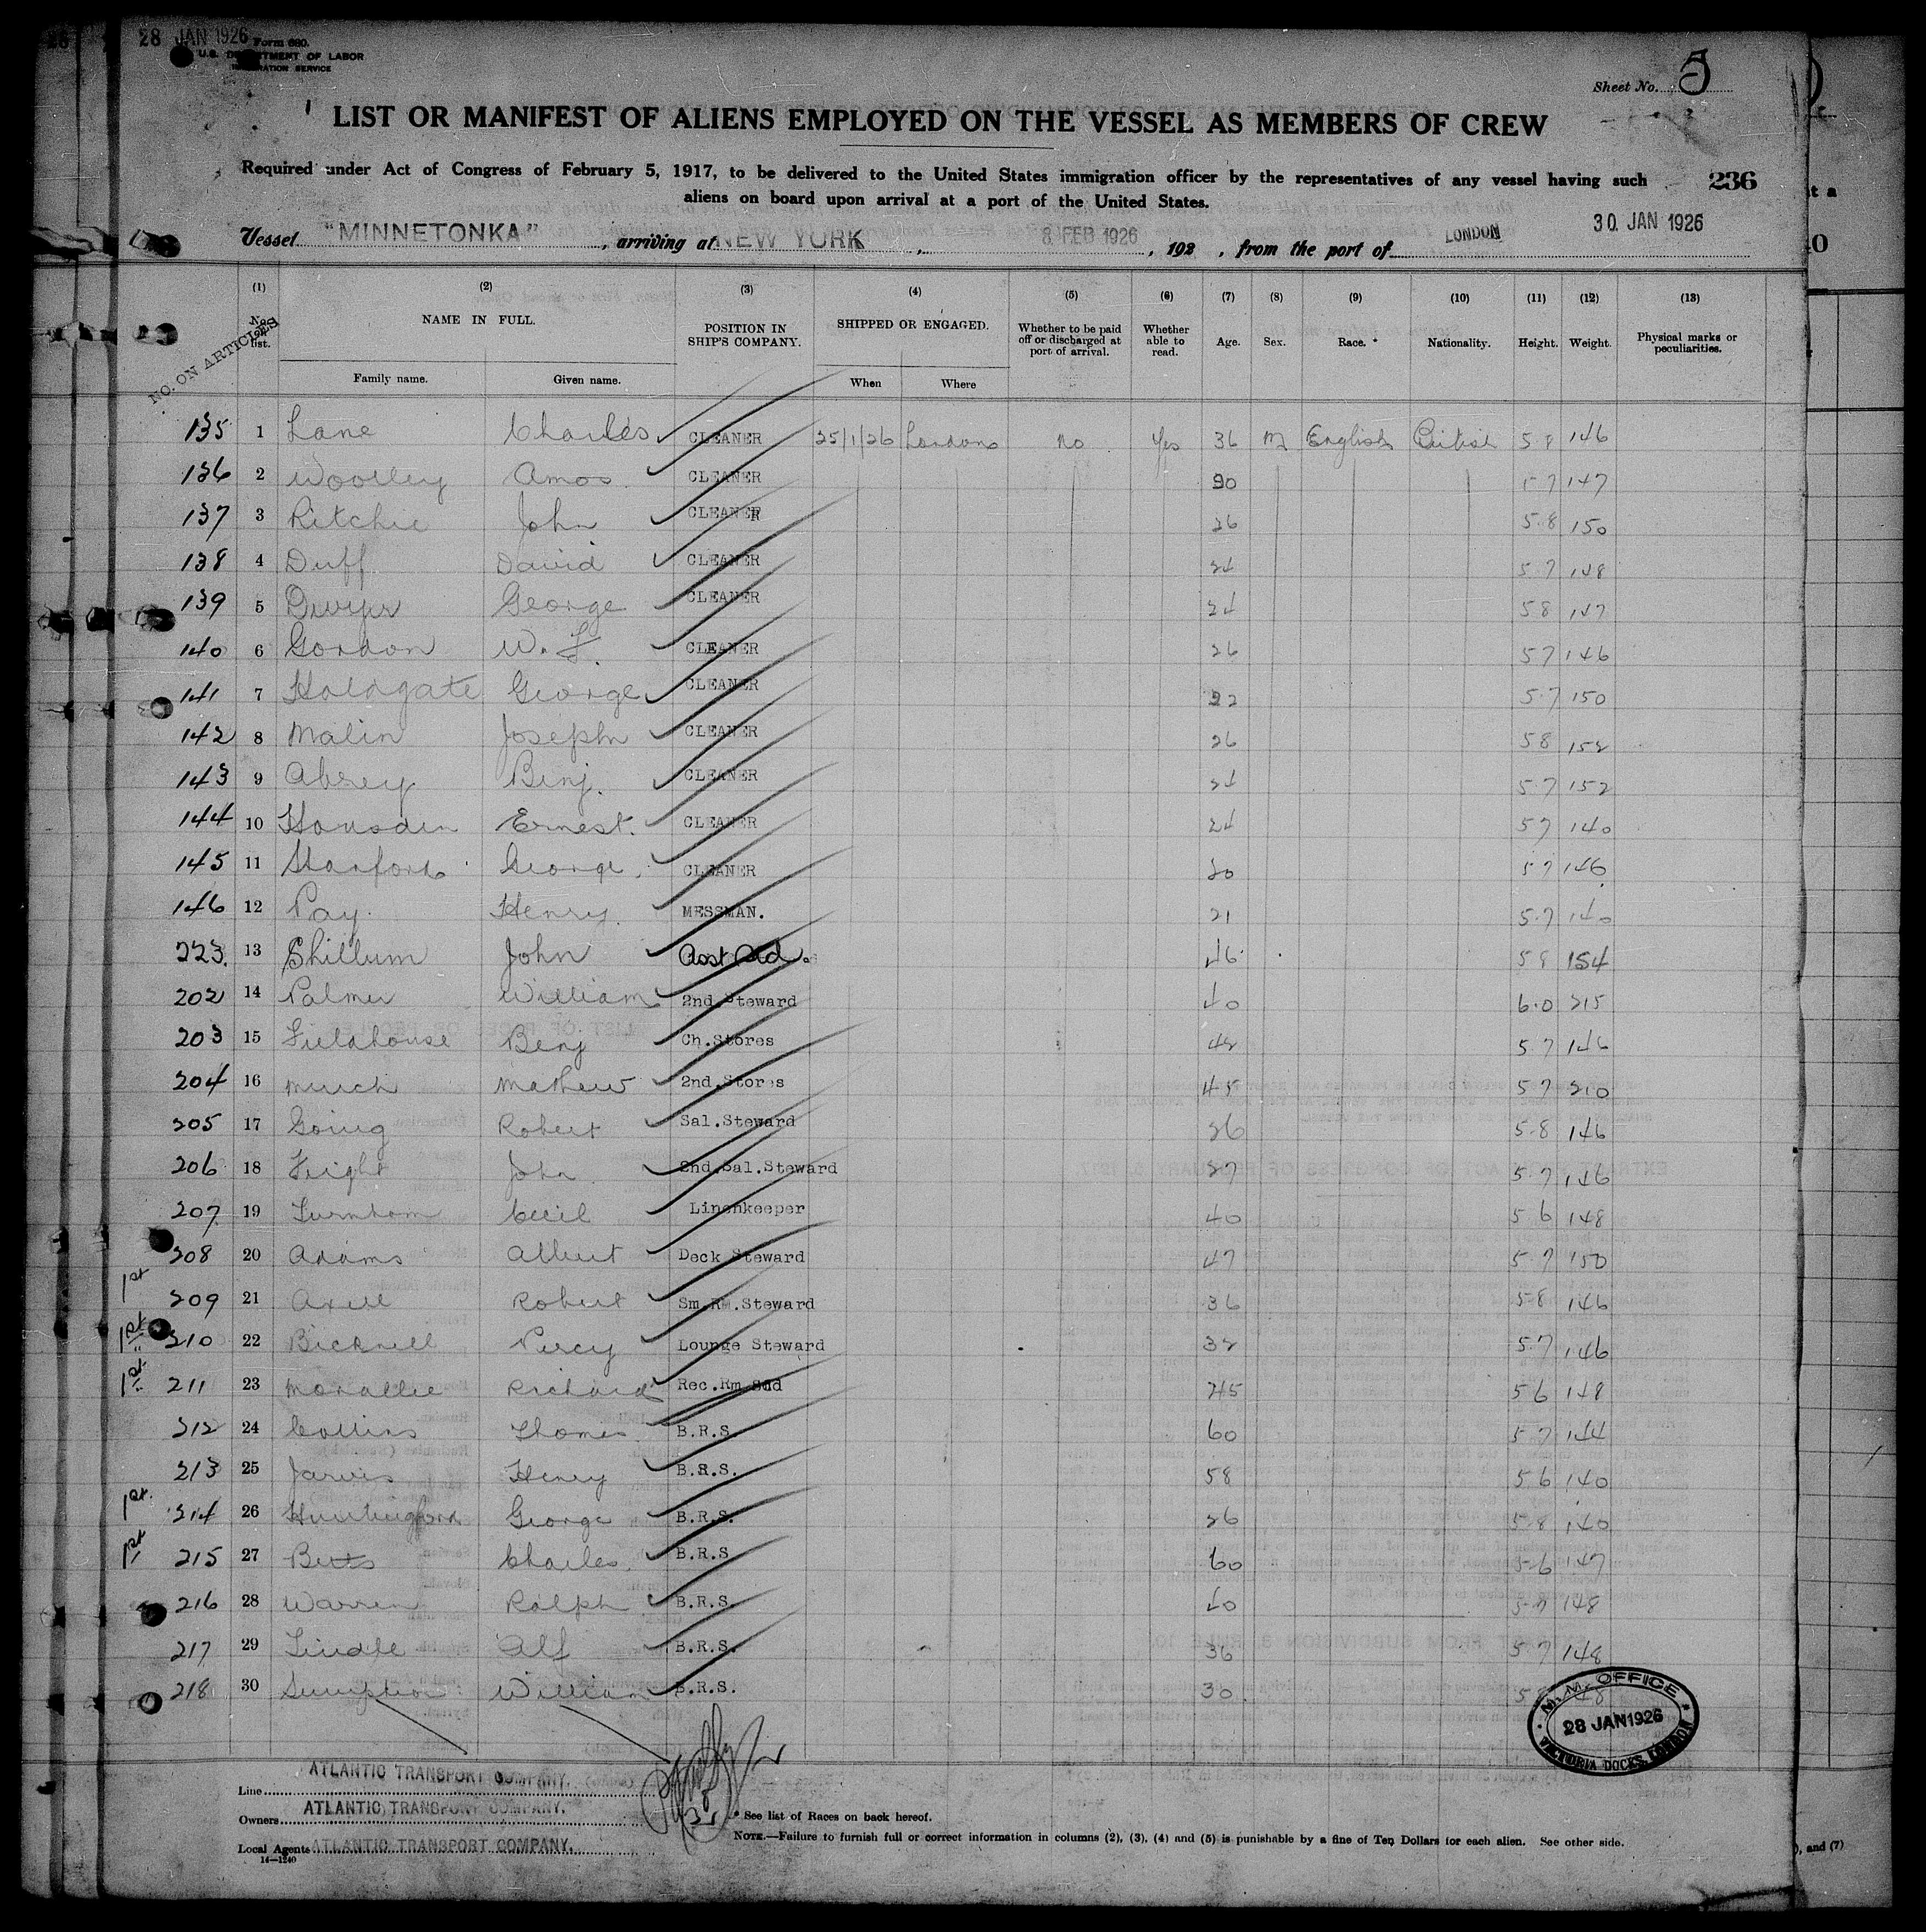 28 JAN 1926 Form 680.
U.S. DEPARTMENT OF LABOR
IMMIGRATION SERVICE
Sheet No. 5
LIST OR MANIFEST OF ALIENS EMPLOYED ON THE VESSEL AS MEMBERS OF CREW
Required under Act of Congress of February 5, 1917, to be delivered to the United States immigration officer by the representatives of any vessel having such
236
aliens on board upon arrival at a port of the United States.
Vessel "MINNETONKA", arriving at NEW YORK, 8 FEB 1926, 192 , from the port of LONDON 30 JAN 1926
NO. ON ARTICLES
(1) (2) (3) (4) (5) (6) (7) (8) (9) (10) (11) (12) (13)
No. list. NAME IN FULL. POSITION IN SHIP'S COMPANY. SHIPPED OR ENGAGED. Whether to be paid off or discharged at port of arrival. Whether able to read. Age. Sex. Race.* Nationality. Height. Weight. Physical marks or peculiarities.
Family name. Given name. When Where
135 1 Lane Charles CLEANER 25/1/26 London no Yes 36 m English British 5 8 146
136 2 Woolley Amos CLEANER 30 5 7 147
137 3 Ritchie John CLEANER 26 5.8 150
138 4 Duff David CLEANER 24 5.7 148
139 5 Dwyer George CLEANER 24 5 8 147
140 6 Gordon W. F. CLEANER 26 5 7 146
141 7 Holdgate George CLEANER 22 5.7 150
142 8 Malin Joseph CLEANER 26 5 8 152
143 9 Abrey Benj. CLEANER 24 5.7 152
144 10 Housden Ernest. CLEANER 24 5 7 140
145 11 Stanford George. CLEANER 30 5 7 146
146 12 Pay. Henry. MESSMAN. 21 5.7 140
223. 13 Chillum John Asst Std. 46 5 8 154
202 14 Palmer William 2nd Steward 40 6.0 215
203 15 Fieldhouse Benj Ch.Stores 42 5.7 146
204 16 Minch Mathew 2nd.Stores 45 5 7 210
205 17 Going Robert Sal.Steward 26 5.8 146
206 18 Fright John 2nd.Sal.Steward 27 5.7 146
207 19 Turnham Cecil Linenkeeper 40 5 6 148
208 20 Adams Albert Deck Steward 47 5.7 150
1st 209 21 Axell Robert Sm.Rm.Steward 36 5 8 146
1st 210 22 Bicknell Percy Lounge Steward 32 5.7 146
1st 211 23 Morallee Richard Rec.Rm.Std 45 5 6 148
212 24 Collins Thomas B.R.S. 60 5 7 144
213 25 Jarvis Henry B.R.S. 58 5 6 140
1st. 214 26 Huntingford George B.R.S. 26 5.8 140
1st 215 27 Betts Charles. B.R.S 60 5.6 147
216 28 Warren Ralph B.R.S. 40 5.7 148
217 29 Lindle Alf B.R.S. 36 5.7 148
218 30 Sumption William B.R.S. 30 5 8 148
M.M. OFFICE
28 JAN 1926
VICTORIA DOCKS, LONDON
Line ATLANTIC TRANSPORT COMPANY.
Owners ATLANTIC TRANSPORT COMPANY.
* See list of Races on back hereof.
NOTE.—Failure to furnish full or correct information in columns (2), (3), (4) and (5) is punishable by a fine of Ten Dollars for each alien. See other side.
Local Agents ATLANTIC TRANSPORT COMPANY.
14—1240
, and (7)